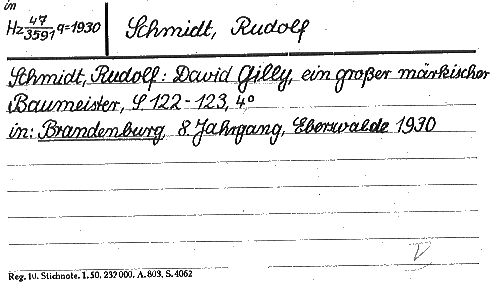 in
Hz 47/3591 q=1930
Schmidt, Rudolf
Schmidt, Rudolf: David Gilly, ein großer märkischer
Baumeister, S. 122-123, 4°
in: Brandenburg, 8. Jahrgang, Eberswalde 1930
Reg. 10. Stichnote. 1.50, 232000. A. 803, S. 4062